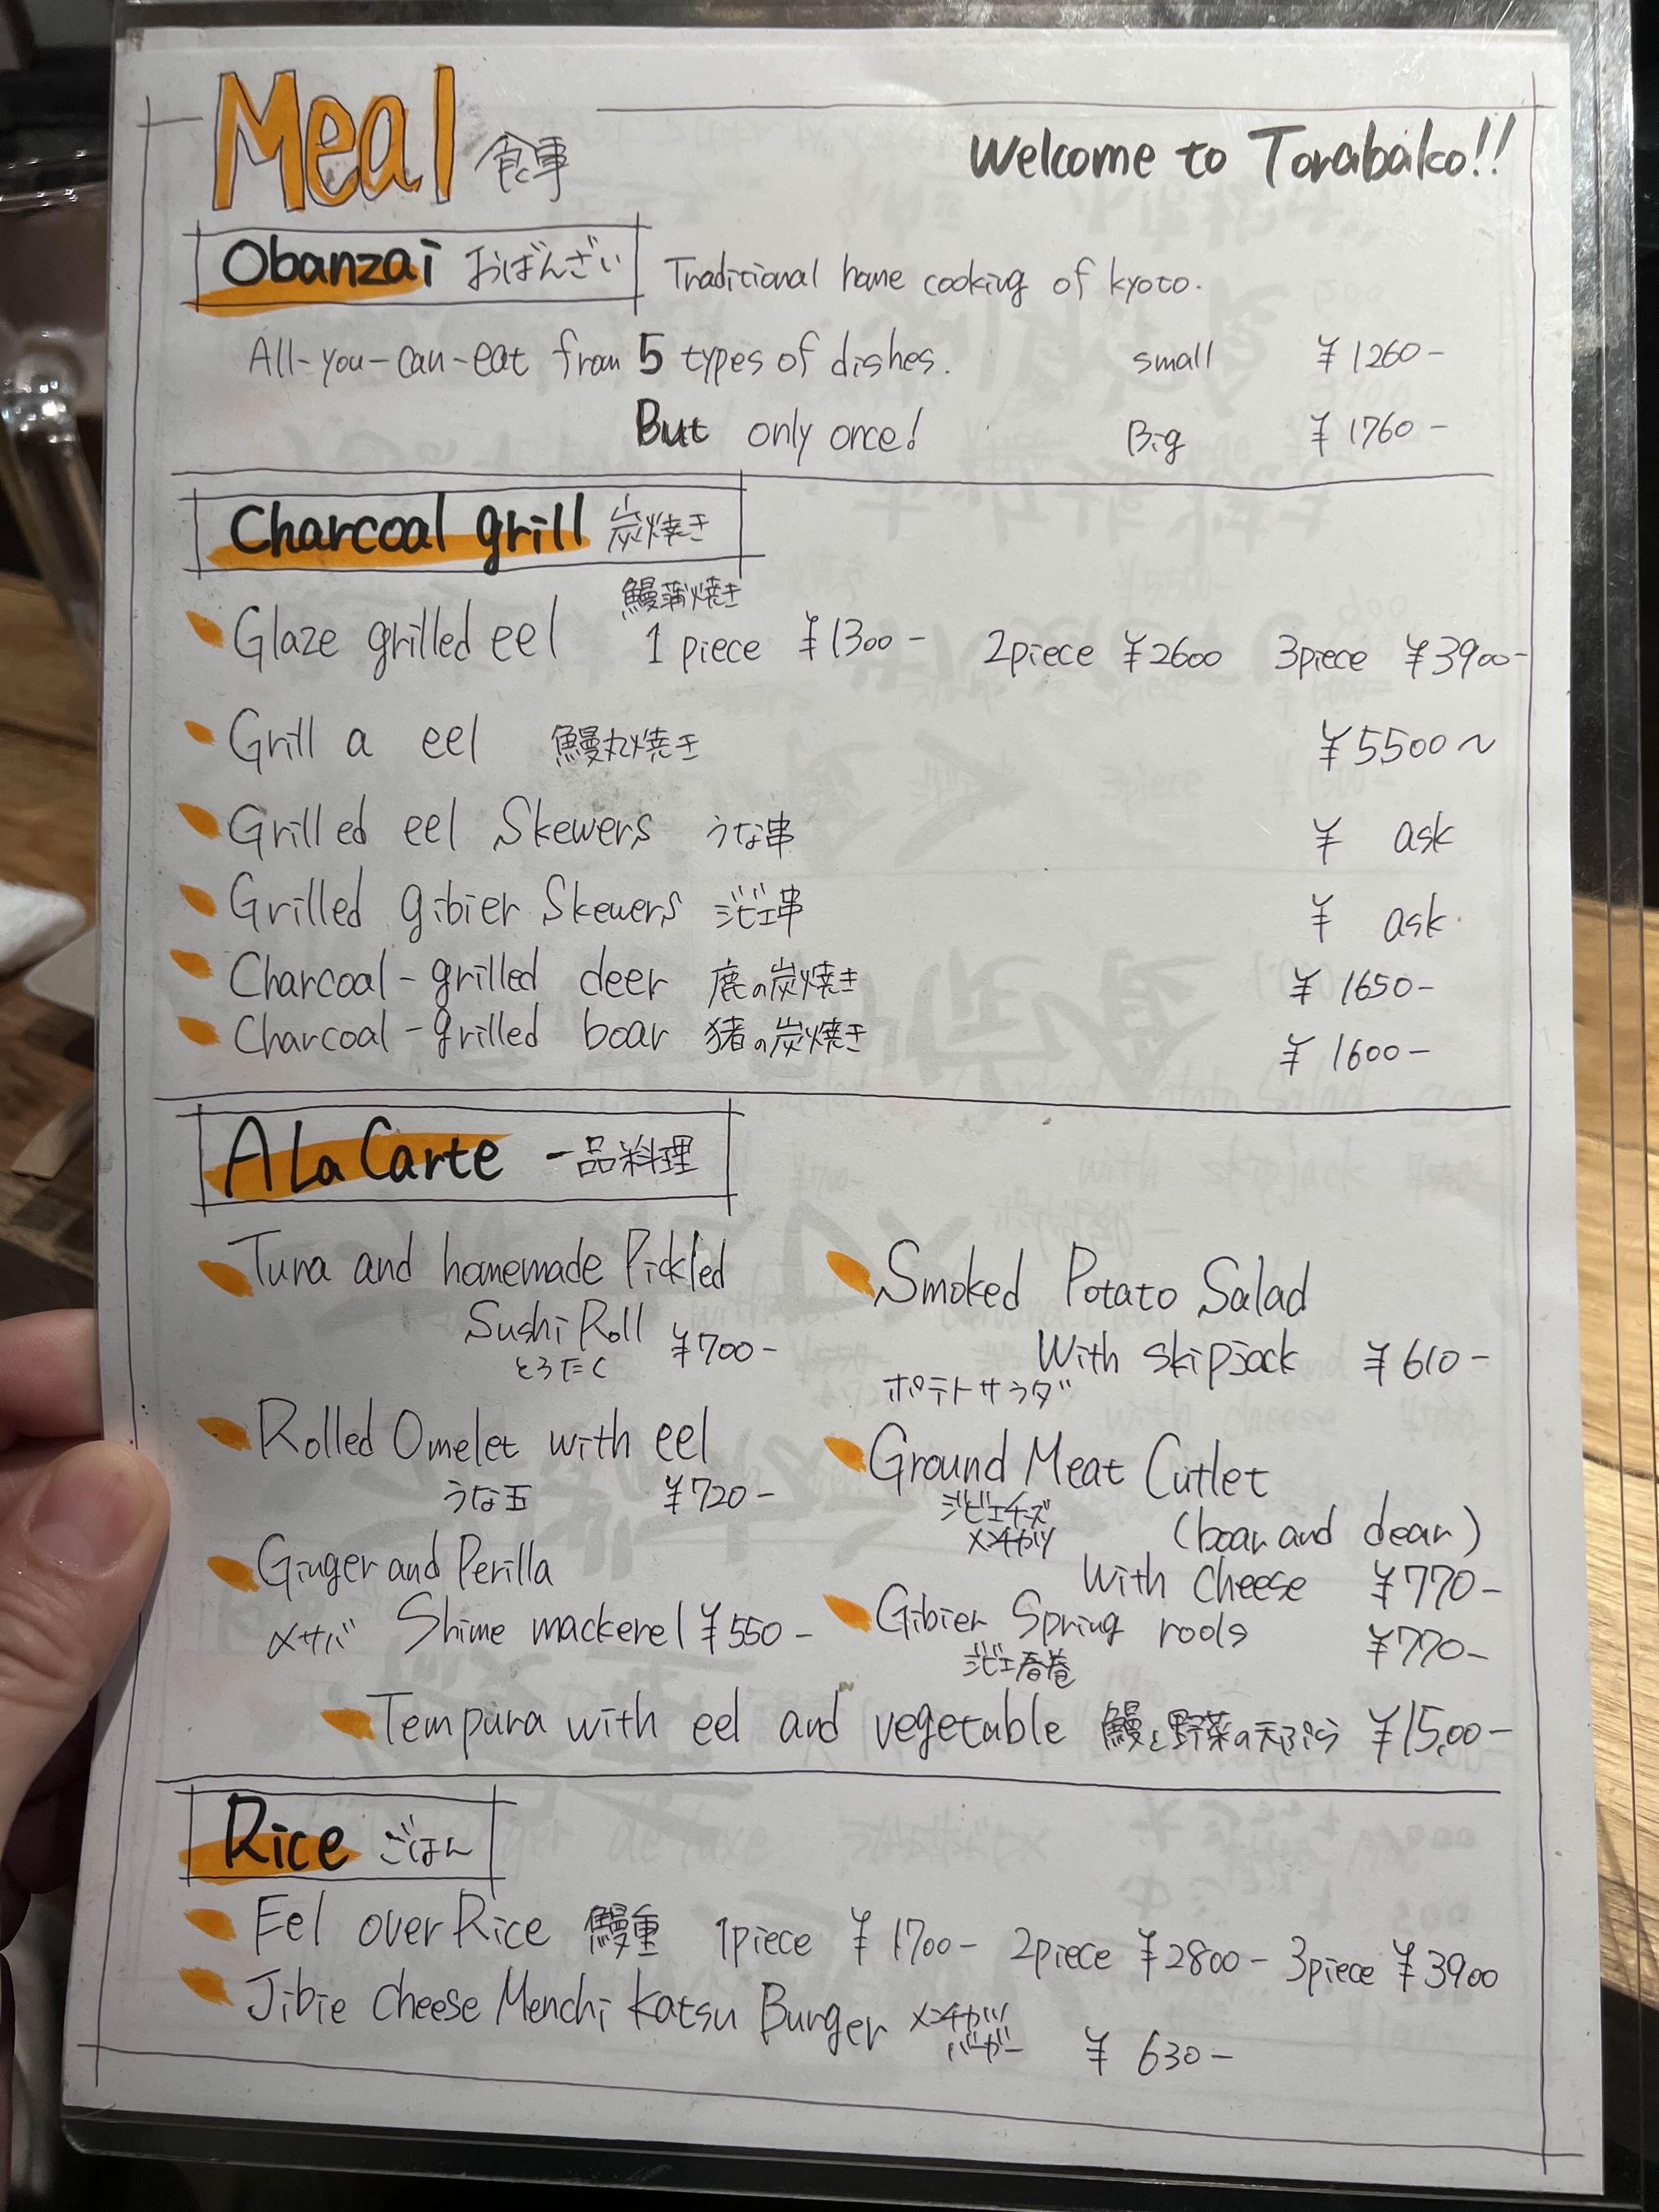 Meal 食事
Welcome to Torabako!!
Obanzai おばんざい Traditional home cooking of kyoto.
All-you-can-eat from 5 types of dishes. small ¥1260-
But only once! Big ¥1760-
Charcoal grill 炭焼き
鰻蒲焼き
Glaze grilled eel 1 piece ¥1300- 2piece ¥2600 3piece ¥3900-
Grill a eel 鰻丸焼き ¥5500〜
Grilled eel Skewers うな串 ¥ ask
Grilled gibier Skewers ジビエ串 ¥ ask.
Charcoal-grilled deer 鹿の炭焼き ¥1650-
Charcoal-grilled boar 猪の炭焼き ¥1600-
A La Carte 一品料理
Tuna and homemade Pickled
Sushi Roll ¥700-
とろたく
Rolled Omelet with eel
うな玉 ¥720-
Ginger and Perilla
〆サバ Shime mackerel ¥550-
Smoked Potato Salad
With skipjack ¥610-
ポテトサラダ
Ground Meat Cutlet
ジビエチーズ
メンチカツ (boar and dear)
With cheese ¥770-
Gibier Spring rools ¥770-
ジビエ春巻
Tempura with eel and vegetable 鰻と野菜の天ぷら ¥15,00-
Rice ごはん
Eel over Rice 鰻重 1piece ¥1700- 2piece ¥2800- 3piece ¥3900
Jibie cheese Menchi Katsu Burger メンチカツ
バーガー ¥630-